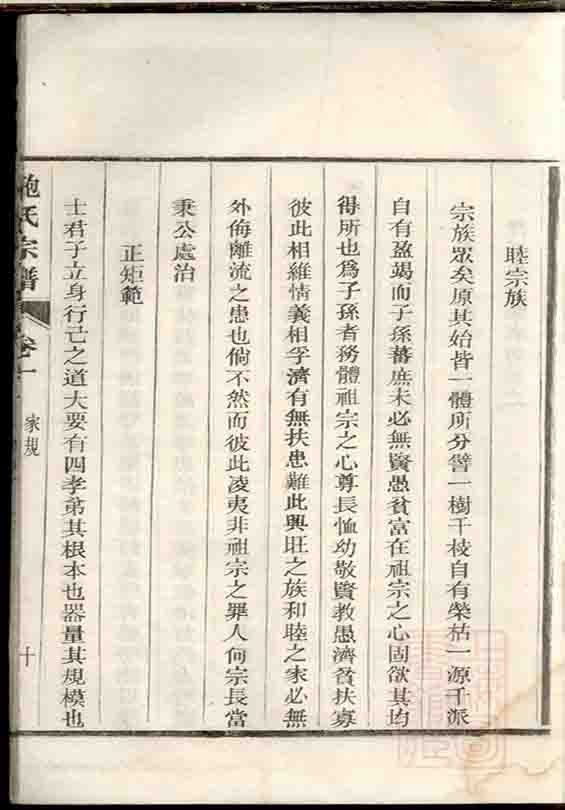 睦宗族
宗族眾矣原其始皆一體所分譬一樹千枝自有榮枯一源千派
自有盈竭而子孫蕃庶未必無賢愚貧富在祖宗之心固欲其均
得所也爲子孫者務體祖宗之心尊長恤幼敬賢教愚濟貧扶寡
彼此相維情義相孚濟有無扶患難此興旺之族和睦之家必無
外侮離流之患也倘不然而彼此凌夷非祖宗之罪人何宗長當
秉公處治
正矩範
士君子立身行己之道大要有四孝弟其根本也器量其規模也
鮑氏宗譜
卷一
家規
十